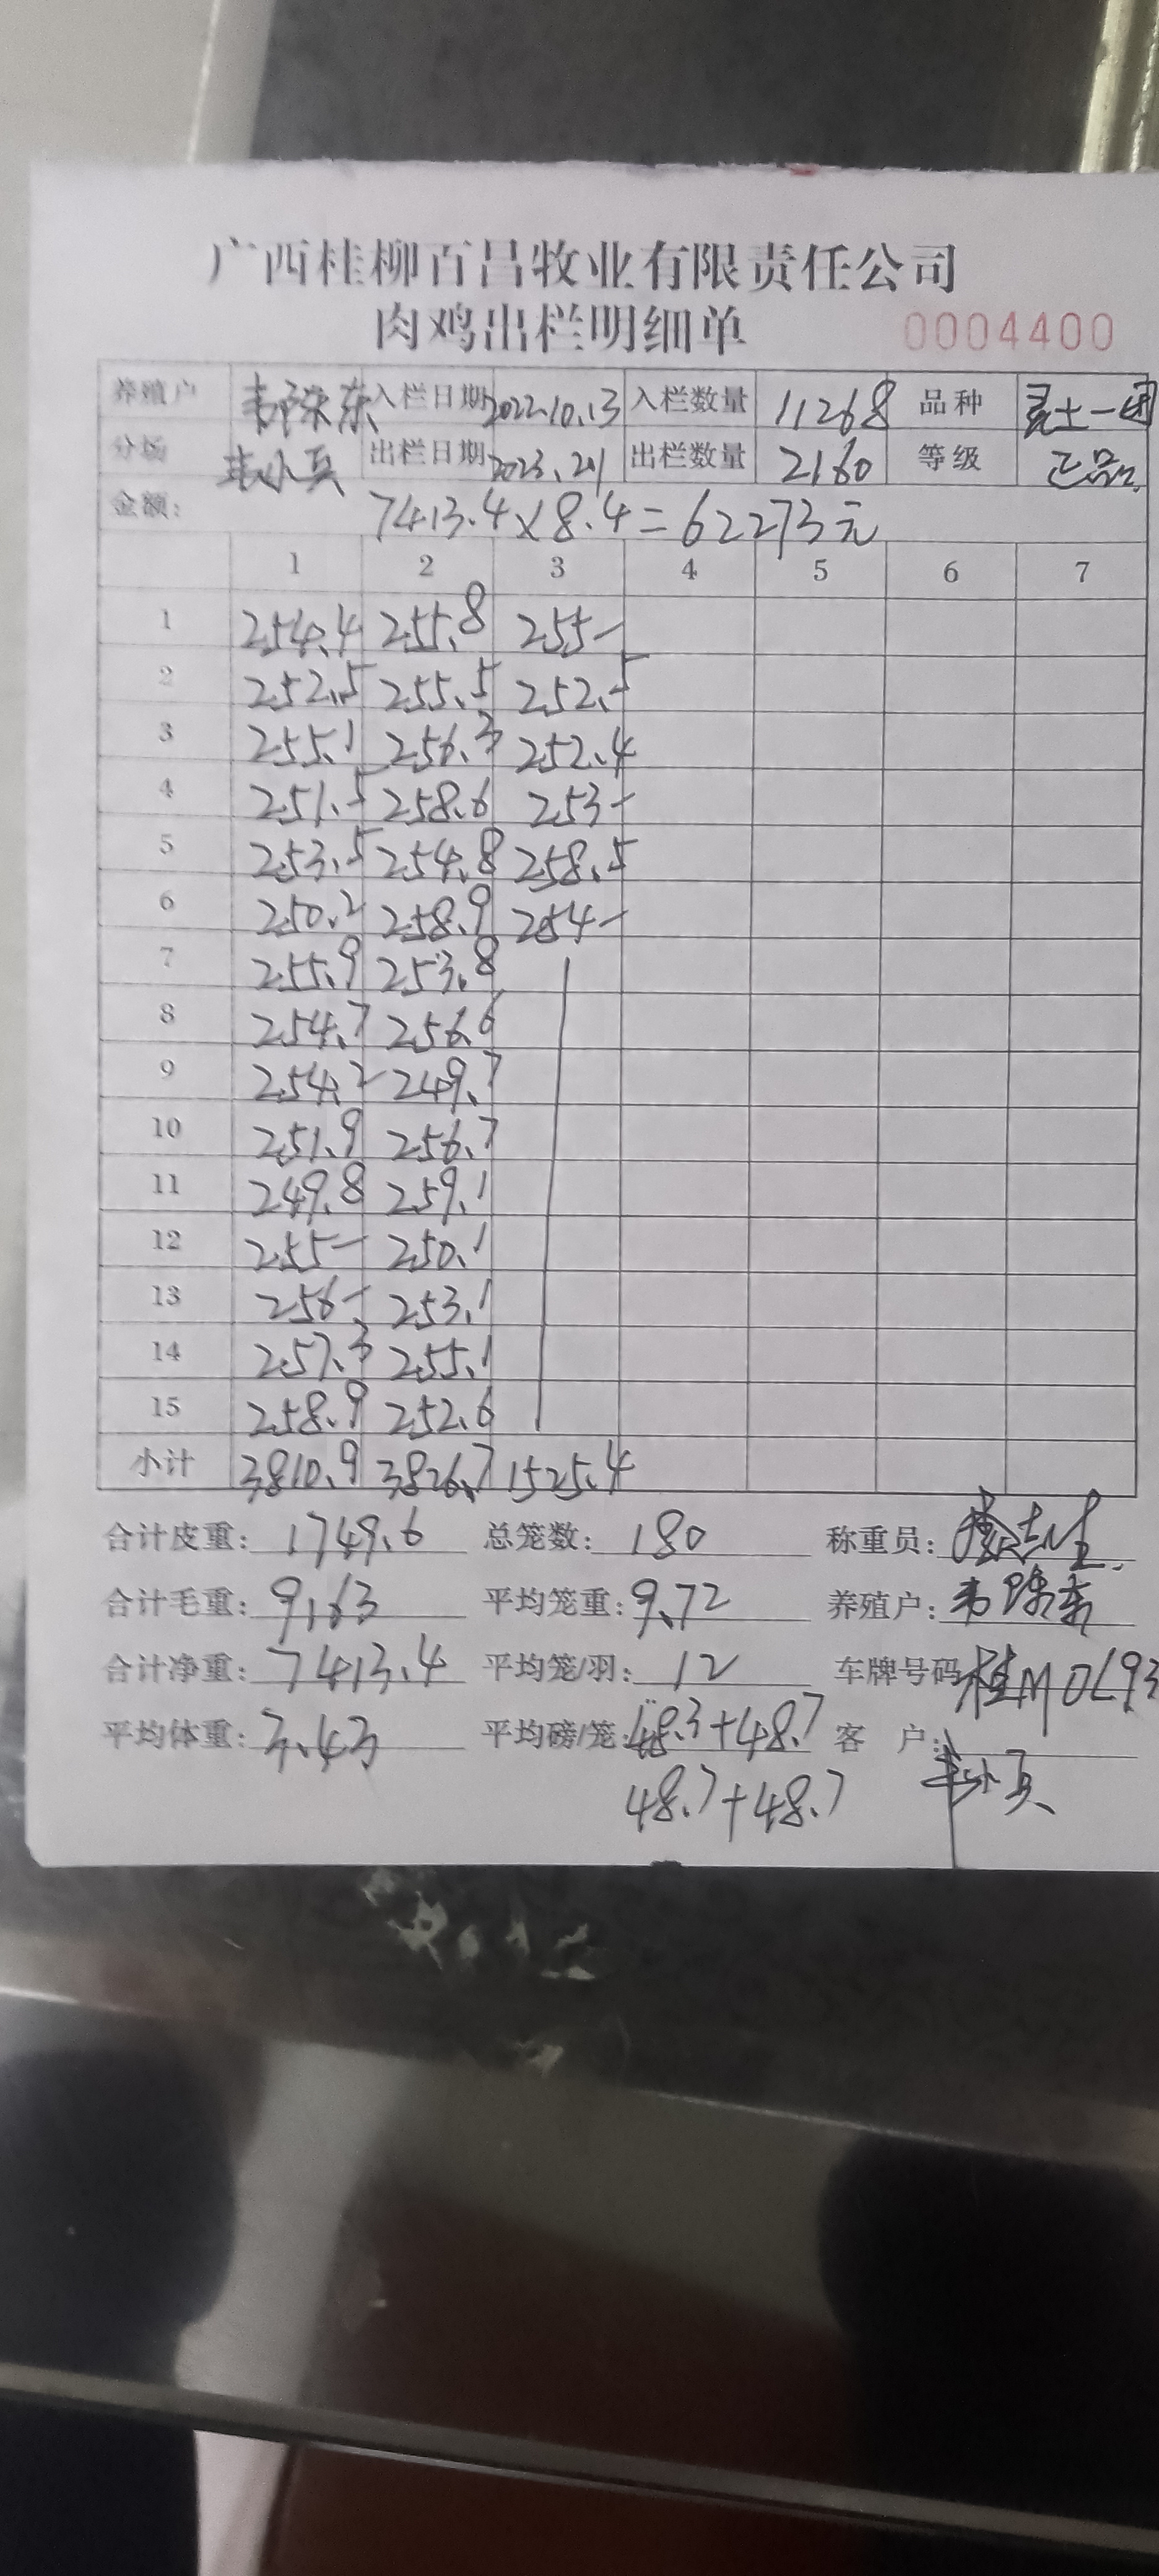 广西桂柳百昌牧业有限责任公司
肉鸡出栏明细单 0004400
养殖户 入栏日期 2022.10.13 入栏数量 11268 品种
分场 韦小兵 出栏日期 2023.2.1 出栏数量 2160 等级 正品
金额: 7413.4×8.4=62273元
1 2 3 4 5 6 7
1 254.4 255.8 255-
2 252.5 255.5 252.5
3 255.1 256.3 252.4
4 251.5 258.6 253-
5 253.5 254.8 258.5
6 250.2 258.9 254-
7 255.9 253.8
8 254.7 256.6
9 254.2 249.7
10 251.9 256.7
11 249.8 259.1
12 255- 250.1
13 256- 253.1
14 257.3 255.1
15 258.9 252.6
小计 3810.9 3826.7 1525.4
合计皮重: 1749.6 总笼数: 180 称重员:
合计毛重: 9163 平均笼重: 9.72 养殖户:
合计净重: 7413.4 平均笼/羽: 12 车牌号码 桂M0L93
平均体重: 3.43 平均磅/笼: 48.3+48.7 客 户:
48.7+48.7 韦小兵